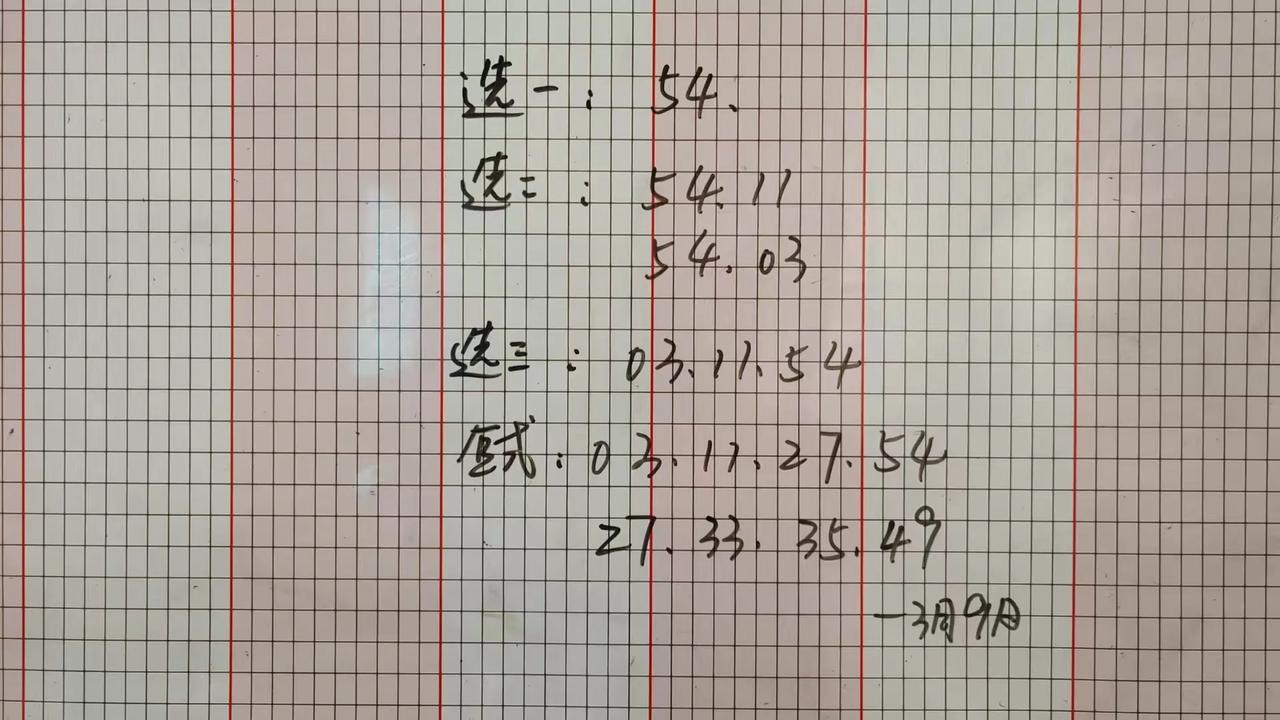 选一： 54.
选二： 54.11
54.03
选三： 03.11.54
复式：03.11.27.54
27.33.35.49
一3月9日